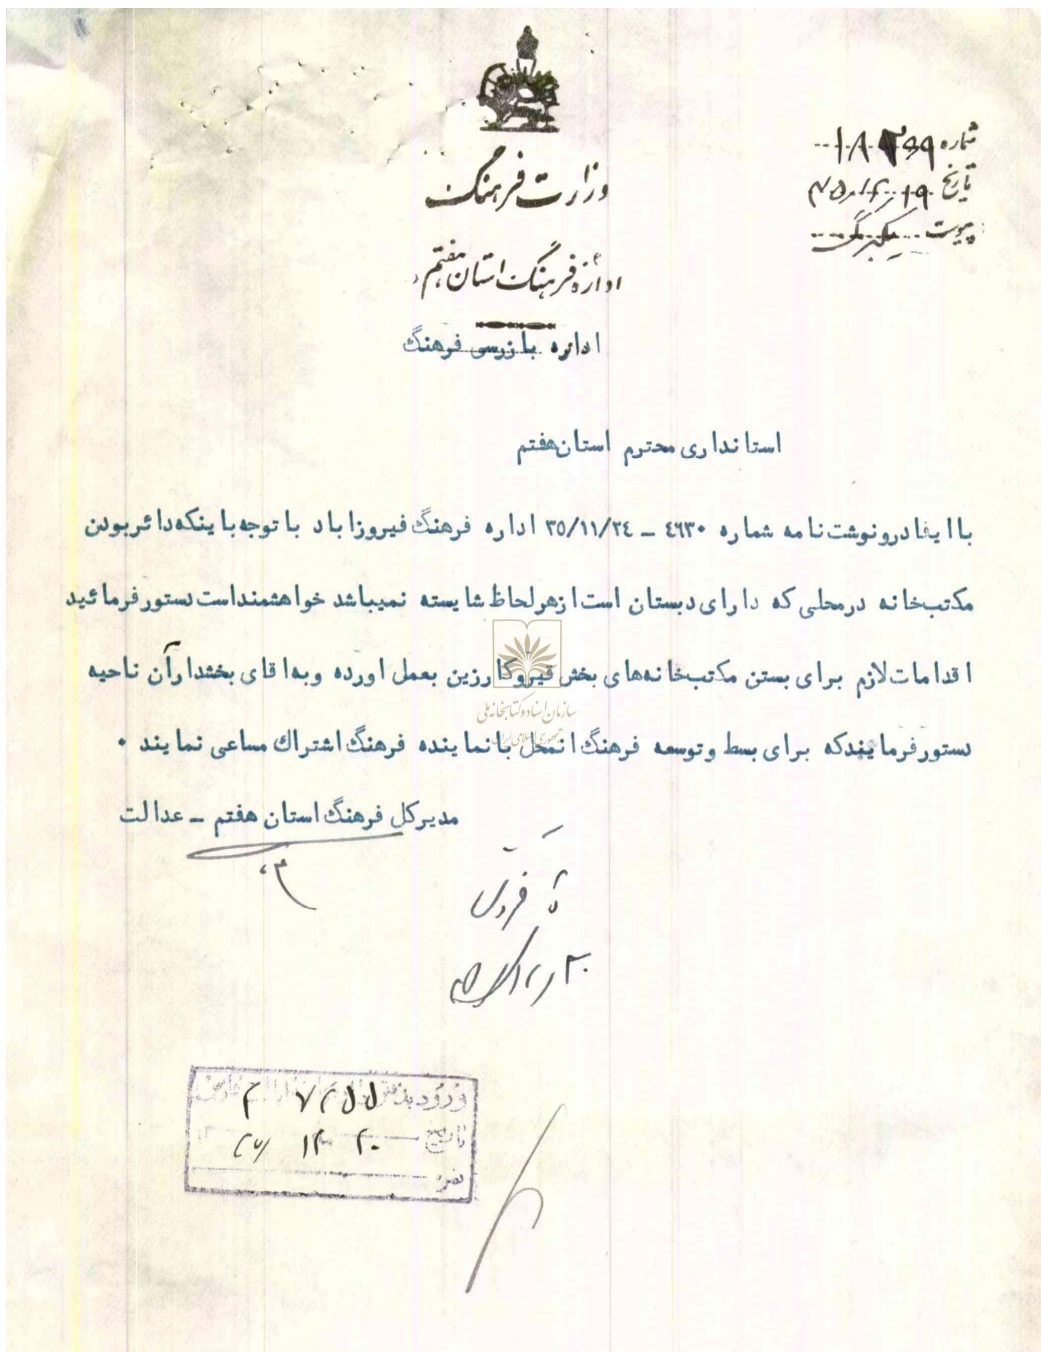 وزارت فرهنگ
شماره
تاریخ
پیوست یکبرگ
اداره فرهنگ استان هفتم
اداره بازرسی فرهنگ
استانداری محترم استان هفتم
با ایفاد رونوشت نامه شماره ٤٦٣٠ - ٣٥/١١/٢٤ اداره فرهنگ فیروزاباد با توجه باینکه دائر بودن
مکتب خانه در محلی که دارای دبستان است از هر لحاظ شایسته نمیباشد خواهشمند است دستور فرمائید
اقدامات لازم برای بستن مکتب خانه های بخش قیروکارزین بعمل اورده و به اقای بخشدار آن ناحیه
دستور فرمایند که برای بسط و توسعه فرهنگ انمحل با نماینده فرهنگ اشتراك مساعی نمایند ٠
سازمان اسناد و کتابخانه ملی
جمهوری اسلامی ایران
مدیر کل فرهنگ استان هفتم - عدالت
ورود بدفتر
تاریخ
نمره